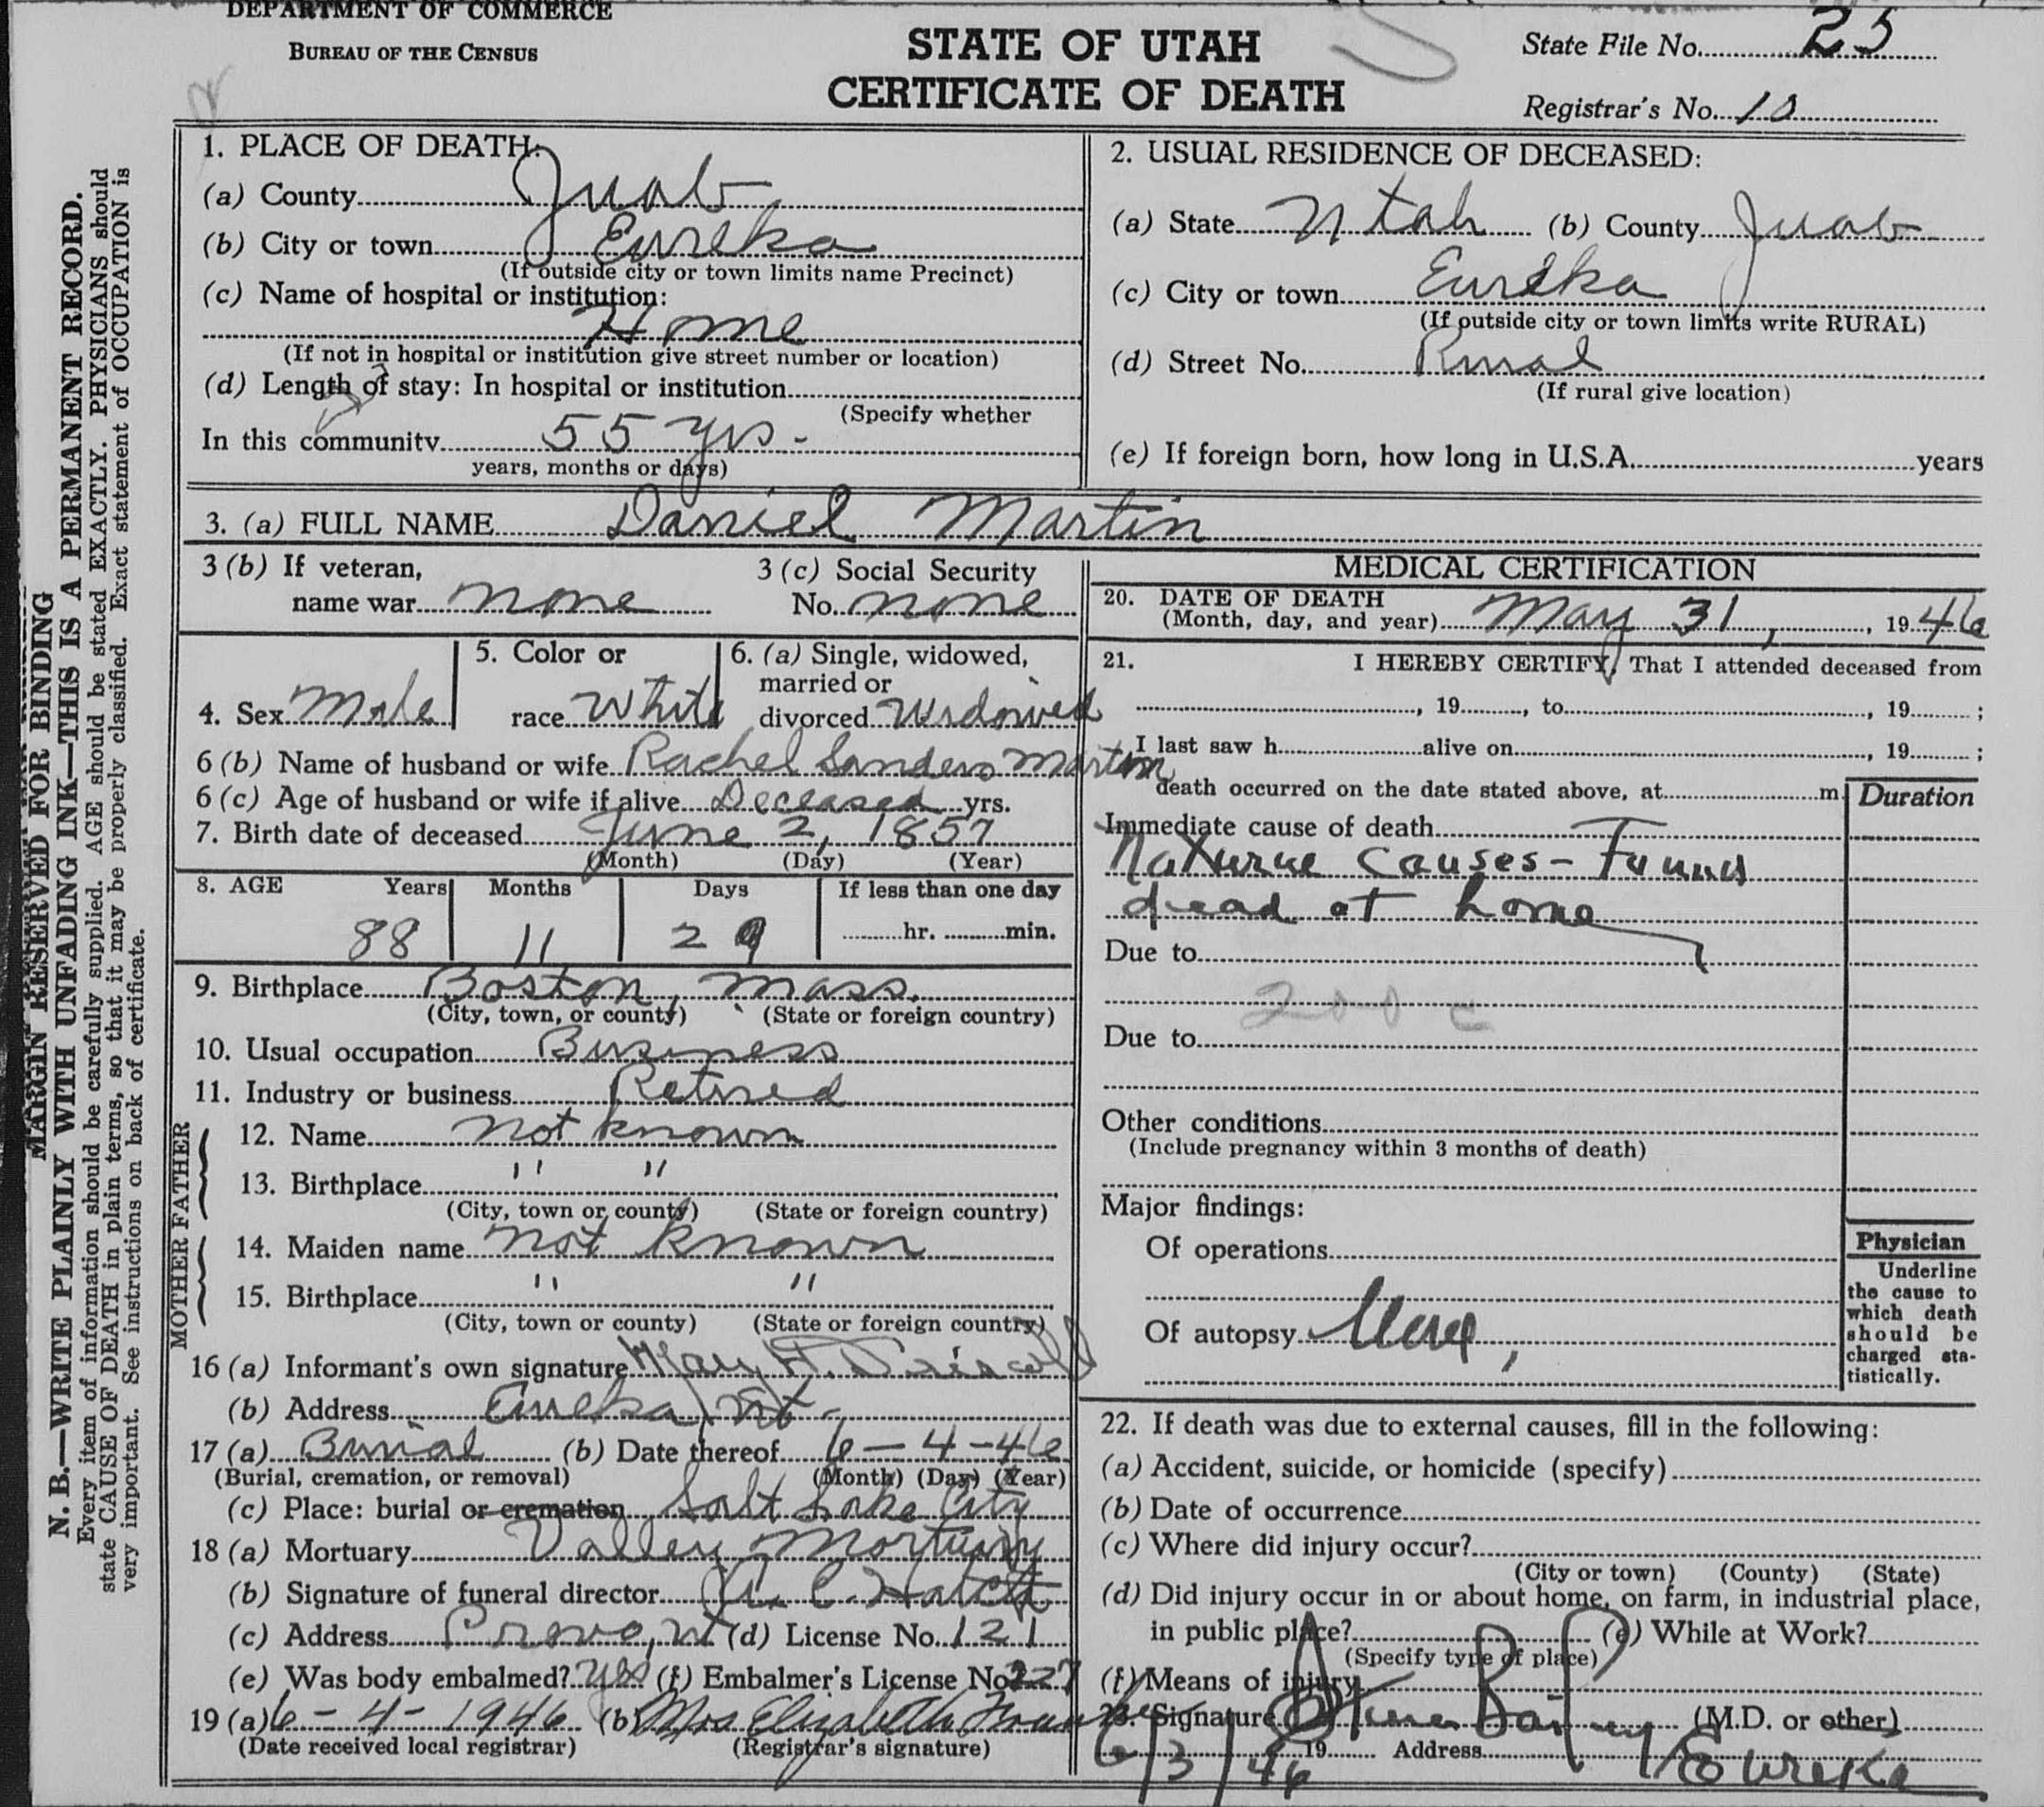 DEPARTMENT OF COMMERCE
BUREAU OF THE CENSUS
STATE OF UTAH
CERTIFICATE OF DEATH
State File No. 25
Registrar's No. 10
MARGIN RESERVED FOR BINDING
N. B.—WRITE PLAINLY WITH UNFADING INK—THIS IS A PERMANENT RECORD.
Every item of information should be carefully supplied. AGE should be stated EXACTLY. PHYSICIANS should
state CAUSE OF DEATH in plain terms, so that it may be properly classified. Exact statement of OCCUPATION is
very important. See instructions on back of certificate.
1. PLACE OF DEATH:
(a) County Juab
(b) City or town Eureka
(If outside city or town limits name Precinct)
(c) Name of hospital or institution:
Home
(If not in hospital or institution give street number or location)
(d) Length of stay: In hospital or institution
(Specify whether
In this community 55 yrs.
years, months or days)
2. USUAL RESIDENCE OF DECEASED:
(a) State Utah (b) County Juab
(c) City or town Eureka
(If outside city or town limits write RURAL)
(d) Street No. Rural
(If rural give location)
(e) If foreign born, how long in U.S.A. years
3. (a) FULL NAME Daniel Martin
3 (b) If veteran,
name war none
3 (c) Social Security
No. none
4. Sex Male
5. Color or
race White
6. (a) Single, widowed,
married or
divorced Widowed
6 (b) Name of husband or wife Rachel Sanders Martin
6 (c) Age of husband or wife if alive Deceased yrs.
7. Birth date of deceased June 2, 1857
(Month) (Day) (Year)
8. AGE Years Months Days If less than one day
88 11 29 hr. min.
9. Birthplace Boston, Mass.
(City, town, or county) (State or foreign country)
10. Usual occupation Business
11. Industry or business Retired
FATHER
12. Name not known
13. Birthplace " "
(City, town or county) (State or foreign country)
MOTHER
14. Maiden name not known
15. Birthplace " "
(City, town or county) (State or foreign country)
16 (a) Informant's own signature Mary H. Driscoll
(b) Address Eureka, Ut.
17 (a) Burial (b) Date thereof 6-4-46
(Burial, cremation, or removal) (Month) (Day) (Year)
(c) Place: burial or cremation Salt Lake City
18 (a) Mortuary Valley Mortuary
(b) Signature of funeral director A. C. Hatch
(c) Address Provo, Ut (d) License No. 121
(e) Was body embalmed? yes (f) Embalmer's License No. 227
19 (a) 6-4-1946 (b) Mrs Elizabeth
(Date received local registrar) (Registrar's signature)
MEDICAL CERTIFICATION
20. DATE OF DEATH
(Month, day, and year) May 31, 1946
21. I HEREBY CERTIFY, That I attended deceased from
, 19 , to , 19 ;
I last saw h alive on , 19 ;
death occurred on the date stated above, at m.
Duration
Immediate cause of death
Nature causes - Found
dead at home
Due to
200 c
Due to
Other conditions
(Include pregnancy within 3 months of death)
Major findings:
Of operations
Of autopsy
Physician
Underline
the cause to
which death
should be
charged sta-
tistically.
22. If death was due to external causes, fill in the following:
(a) Accident, suicide, or homicide (specify)
(b) Date of occurrence
(c) Where did injury occur?
(City or town) (County) (State)
(d) Did injury occur in or about home, on farm, in industrial place,
in public place? (e) While at Work?
(Specify type of place)
(f) Means of injury
23. Signature Steve Bailey (M.D. or other)
6/3/46 19 Address Eureka